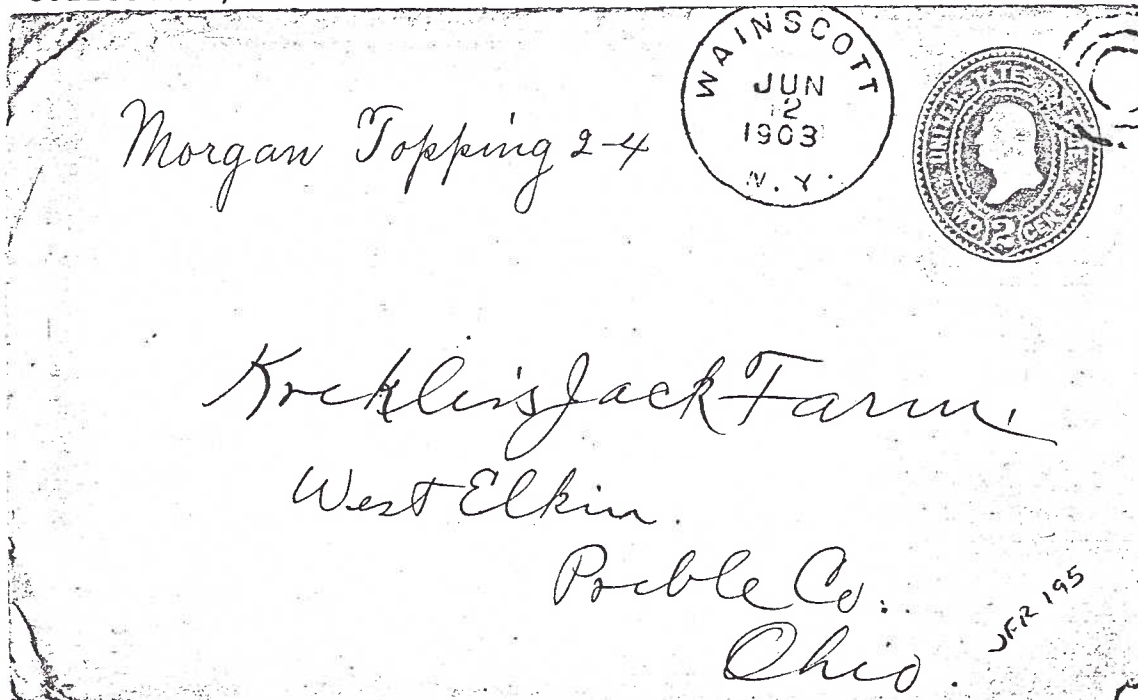 Morgan Topping 2-4
WAINSCOTT
JUN
12
1903
N.Y.
UNITED STATES
TWO 2 CENTS
Krekler's Jack Farm.
West Elkin.
Preble Co.
Ohio.
JFR 195